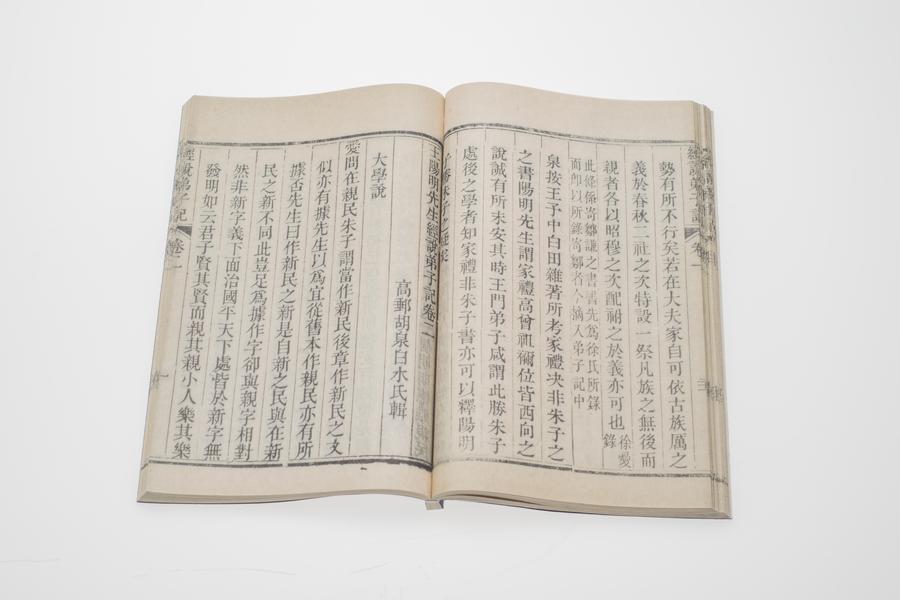 勢有所不行矣若在大夫家自可依古族厲之
義於春秋二社之次特設一祭凡族之無後而
親者各以昭穆之次配祔之於義亦可也錄徐愛
此條係寄鄒謙之書書先為徐氏所錄
而即以所錄寄鄒者今摘入弟子記中
泉按王予中白田雜著所考家禮决非朱子之
之書陽明先生謂家禮高曾祖禰位皆西向之
說誠有所未安其時王門弟子咸謂此勝朱子
處後之學者知家禮非朱子書亦可以釋陽明
王陽明先生經說弟子記卷二
高郵胡泉白水氏輯
大學說
愛問在親民朱子謂當作新民後章作新民之文
似亦有據先生以為宜從舊本作親民亦有所
據否先生曰作新民之新是自新之民與在新
民之新不同此豈足為據作字卻與親字相對
然非新字義下面治國平天下處皆於新字無
發明如云君子賢其賢而親其親小人樂其樂
經說弟子記 卷二